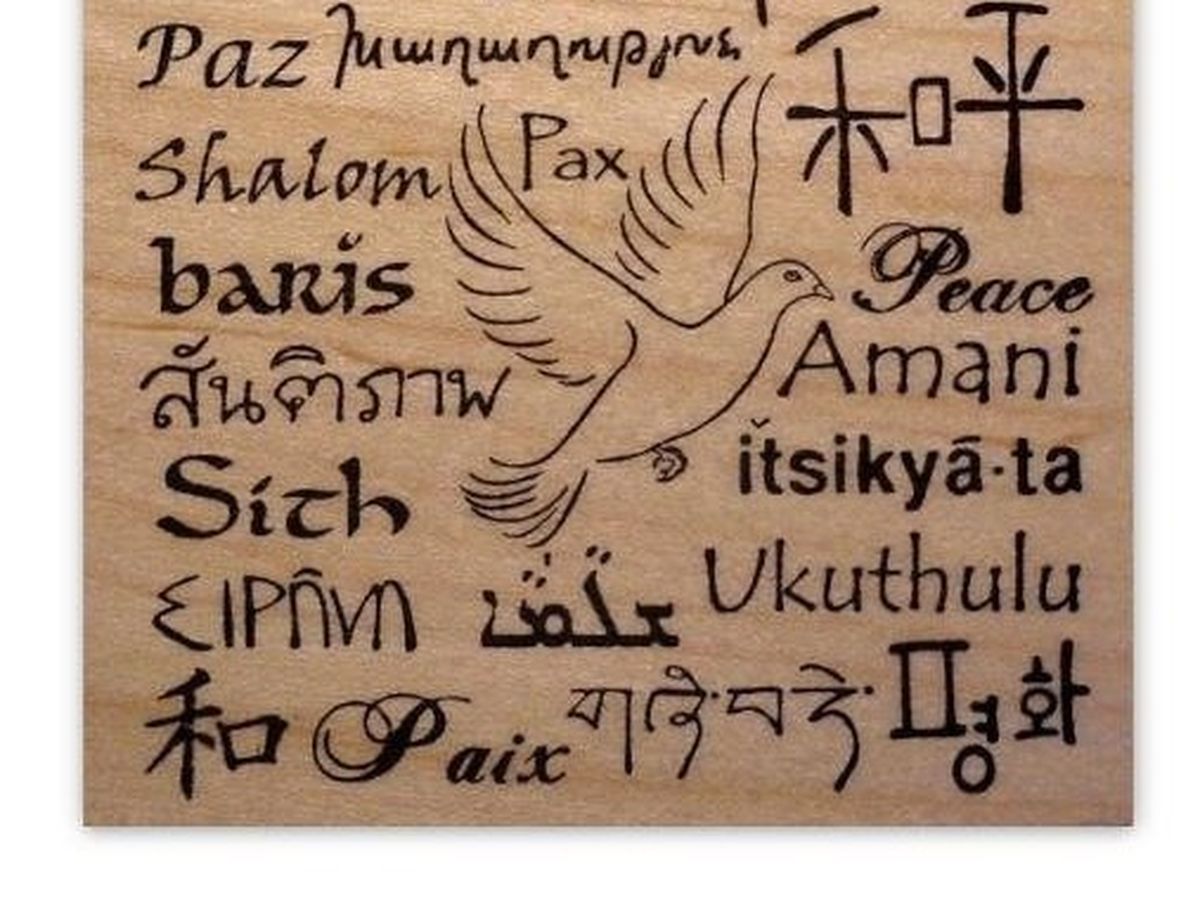 Paz խաղաղություն 和平
Shalom Pax
barış Peace
สันติภาพ Amani
Síth ĭtsikyā·ta
ΕΙΡΗΝΗ Ukuthulu
和 Paix གཞི་བདེ་ 평화